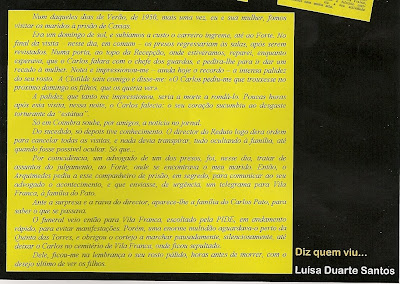 Num daqueles dias de Verão, de 1950, mais uma vez, eu e sua mulher, fomos
visitar os maridos à prisão de Caxias.
Era um domingo de sol, e subíamos a custo o carreiro íngreme, até ao Forte. No
final da visita - nesse dia, em comum - os presos regressariam às salas, após serem
revistados. Numa porta, ao topo da Recepção, onde estivéramos, reparei, enquanto
esperava, que o Carlos falara com o chefe dos guardas, e pedira-lhe para ir dar um
recado à mulher. Notei e impressionou-me - ainda hoje o recordo - a intensa palidez
do seu rosto. A Clotilde saiu comigo e disse-me: «O Carlos pediu-me que trouxesse no
próximo domingo os filhos, que os queria ver».
A palidez, que tanto me impressionou, seria a morte a rondá-lo. Poucas horas
após esta visita, nessa noite, o Carlos falecia: o seu coração sucumbia ao desgaste
torturante da "estátua".
Só em Coimbra soube, por amigos, a notícia no jornal.
Do sucedido, só depois tive conhecimento. O director do Reduto logo dera ordem
para cancelar todas as visitas, e nada devia transpirar, tudo ocultando à família, até
quando fosse possível ocultar. Só que...
Por coincidência, um advogado de um dos presos, foi, nesse dia, tratar de
assuntos do julgamento, ao Forte, onde se encontrava o meu marido. Então, o
Arquimedes podia a esse companheiro de prisão, em segredo, para comunicar ao seu
advogado o acontecimento, e que enviasse, de urgência, um telegrama para Vila
Franca, à família do Pato.
Ante a surpresa e a raiva do director, aparece-lhe a família do Carlos Pato, para
saber o que se passava.
O funeral veio então para Vila Franca, escoltado pela PIDE, em andamento
rápido, para evitar manifestações. Porém, uma enorme multidão aguardava-o perto da
Quinta das Torres, e obrigou o cortejo a marchar pausadamente, silenciosamente, até
deixar o Carlos no cemitério de Vila Franca, onde ficou sepultado.
Dele, ficou-me na lembrança o seu rosto pálido, horas antes de morrer, com o
desejo último de ver os filhos...
Diz quem viu...
Luísa Duarte Santos